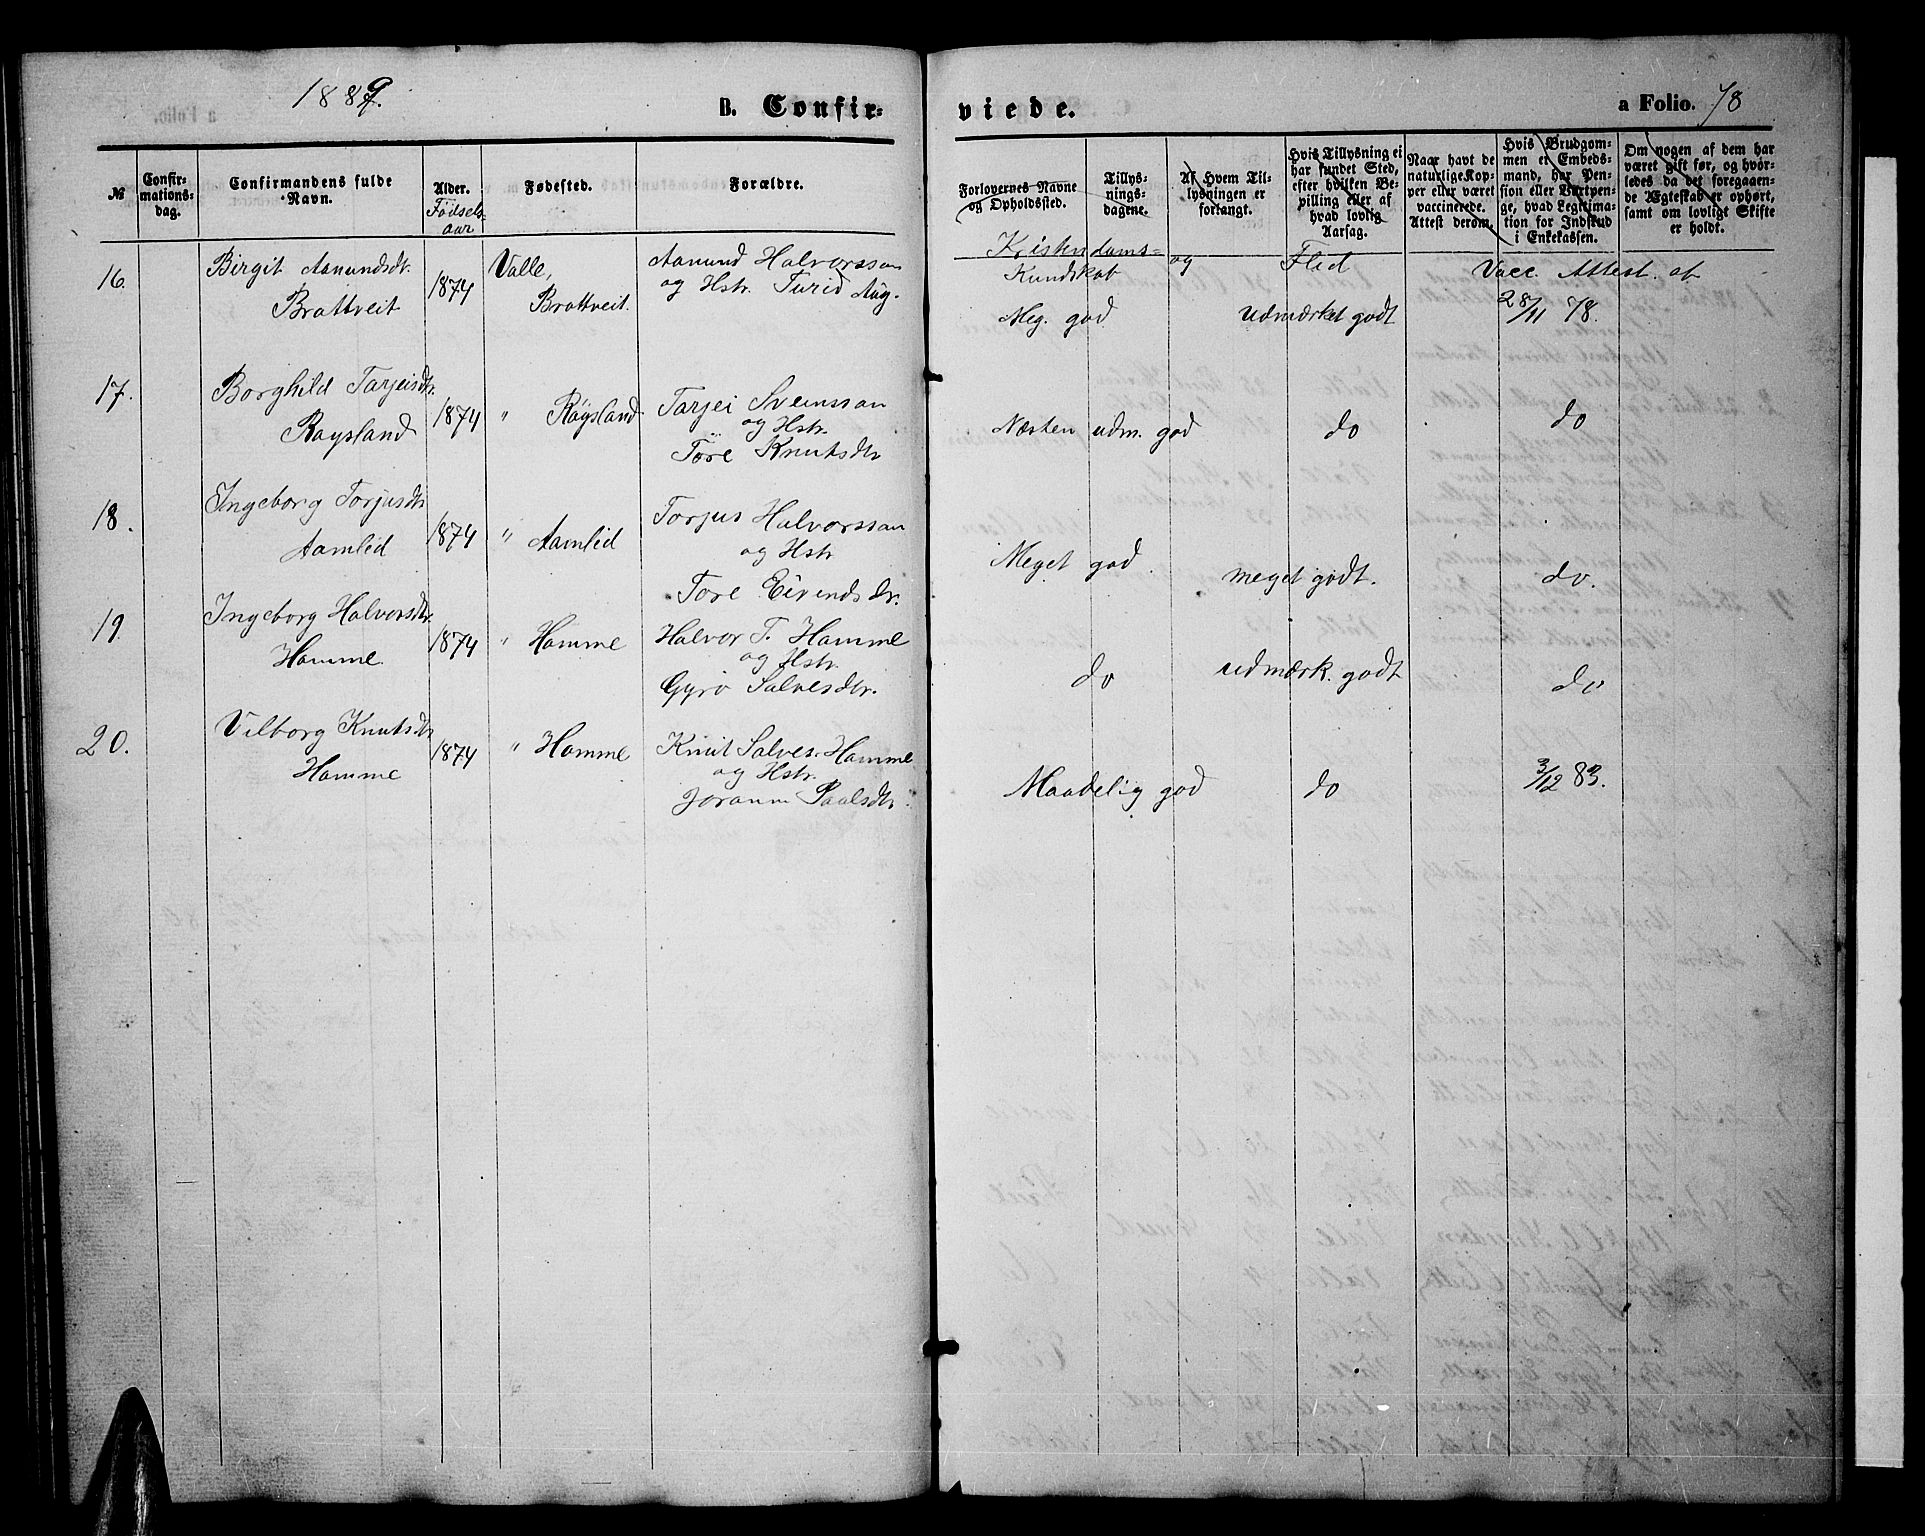 1889.
B. Confir-
viede.
a Folio. 78
№
Confir-
mations-
dag.
Confirmandens fulde
Navn.
Alder.
Födsels-
aar
Fødested.
Forældre.
Forlovernes Navne
og Opholdssted.
Tillys-
nings-
dagene.
Af Hvem Til-
lysningen er
forlangt.
Hvis Tillysning ei
har fundet Sted,
efter hvilken Be-
villing eller af
hvad lovlig
Aarsag.
Naar havt de
naturlige Kop-
per eller været
vaccinerede.
Attest derom.
Hvis Brudgom-
men er Embeds-
mand, har Pen-
sion eller Vartpen-
ge, hvad Legitima-
tion for Indskud
i Enkekassen.
Om nogen af dem har
været gift før, og hvor-
ledes da det foregaaen-
de Ægteskab er ophørt,
samt om lovligt Skifte
er holdt.
Kristendoms-
Kundskab
og
Flid
Vacc. Attest. af
16.
Birgit Aanundsdt.
Brottveit
1874
Valle,
Brottveit.
Aanund Halvorsson
og Hstr. Turid Aug.
Meg. god
udmærket godt
28/11 78.
17.
Borghild Tarjeisdtr.
Raysland
1874
" Röysland.
Tarjei Sveinsson
og Hstr.
Töre Knutsdtr
Næsten udm. god
do
do
18.
Ingeborg Torjusdtr
Aamlid
1874
" Aamlid
Torjus Halvorsson
og Hstr
Tore Eivendsdr.
Meget god.
meget godt.
do.
19
Ingeborg Halvorsdtr.
Homme
1874
" Homme
Halvor T. Homme
og Hstr.
Gyro Salvesdtr.
do
udmærk. godt
do
20.
Vilborg Knutsdtr
Homme
1874
" Homme
Knut Salves. Homme
og Hstr.
Joraann Paalsdtr.
Maadelig god
do
3/12 83.